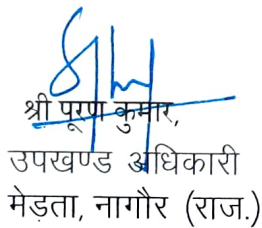 श्री पूरण कुमार,
उपखण्ड अधिकारी
मेड़ता, नागौर (राज.)